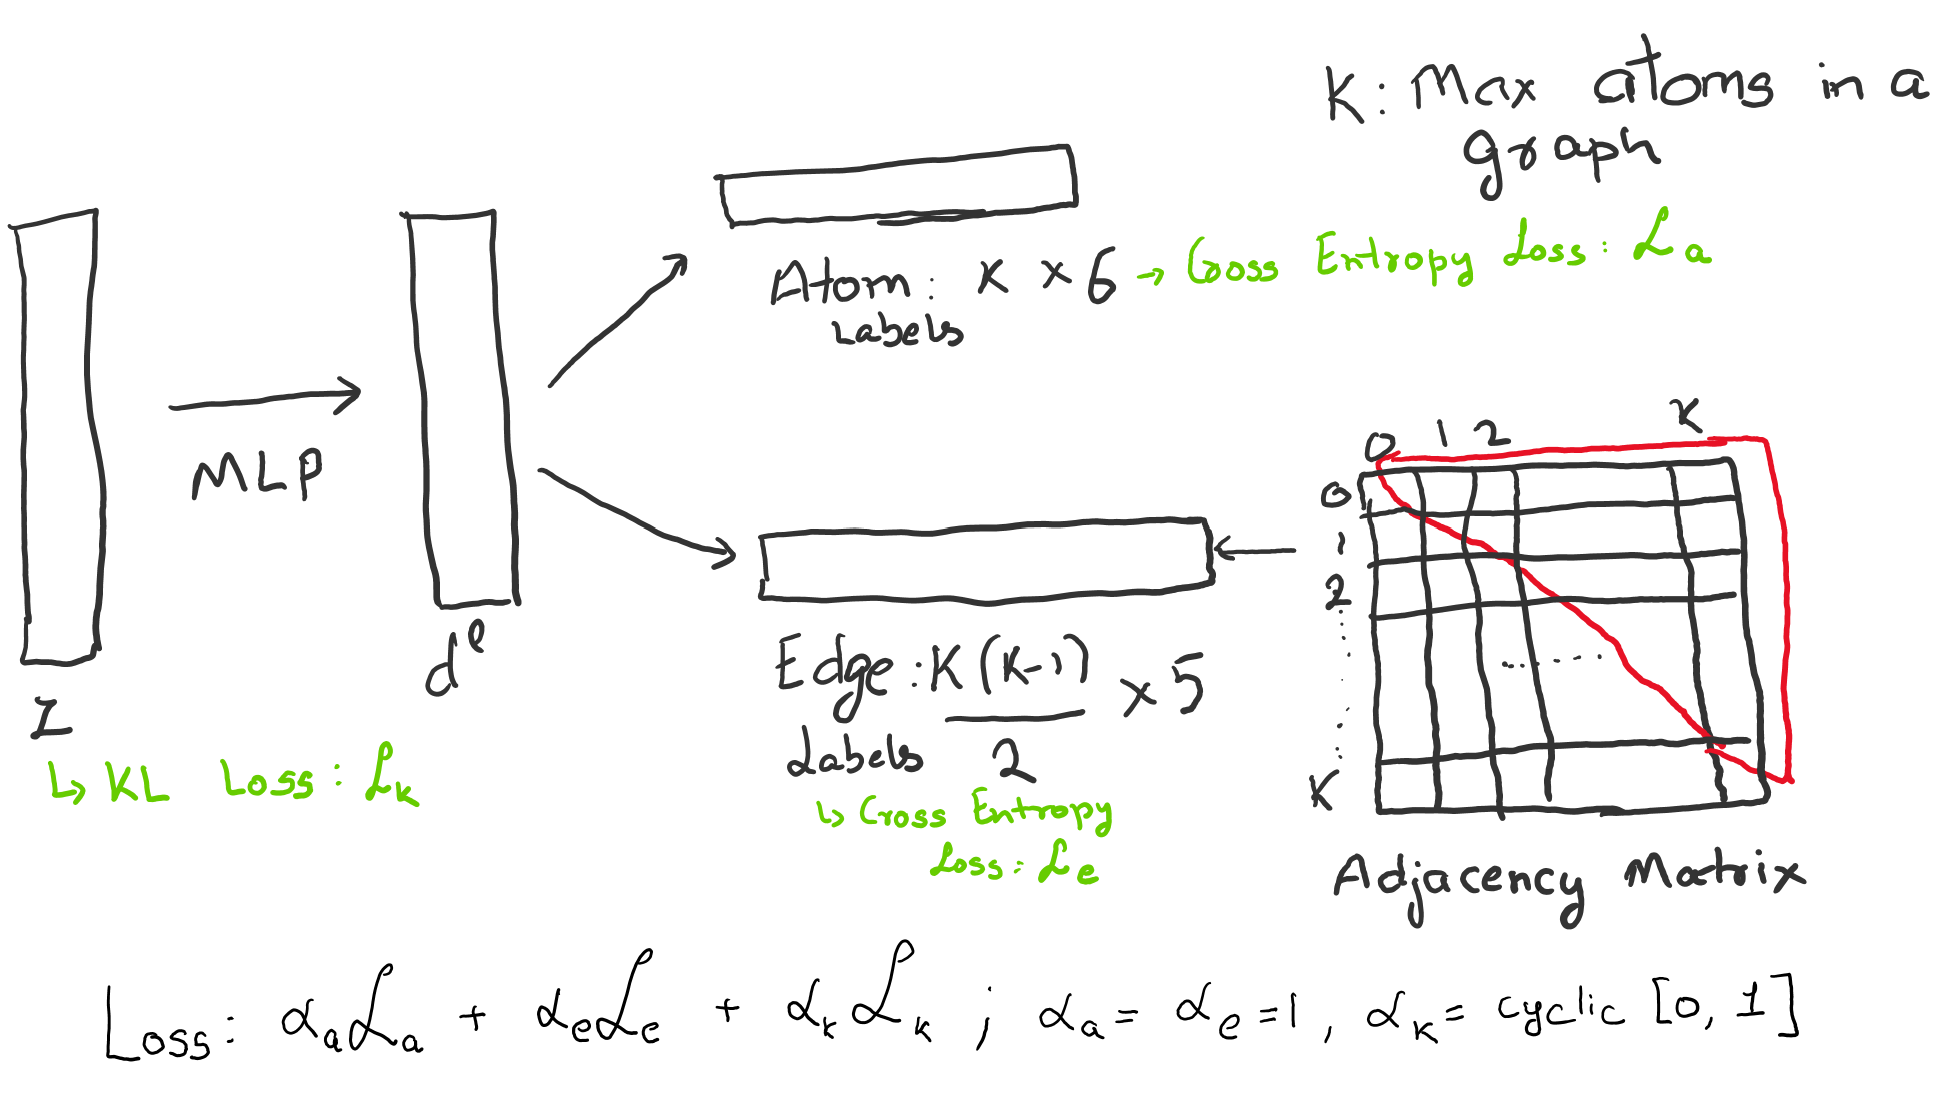 K: Max atoms in a
graph
Atom: K × 6 → Cross Entropy Loss: ℒa
Labels
MLP
0 1 2 K
0
1
2
K
Edge: K(K-1)/2 × 5
Labels
z
dˡ
↳ KL Loss: ℒk
↳ Cross Entropy
Loss: ℒe
Adjacency Matrix
Loss: αaℒa + αeℒe + αkℒk ; αa = αe = 1, αk = cyclic [0, 1]